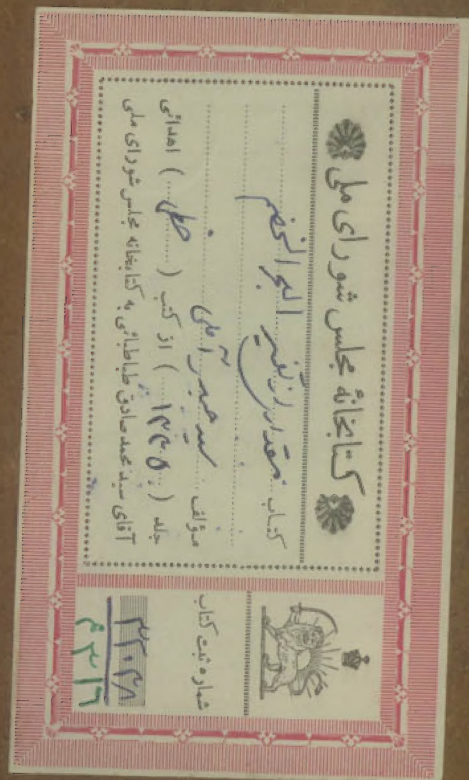 کتابخانهٔ مجلس شورای ملی
کتاب مقداری از تفسیر البحر الخضم
مؤلف سید حیدر آملی
جلد ( ۱۲۴۵ ) از کتب ( خطی ) اهدائی
آقای سید محمد صادق طباطبائی به کتابخانه مجلس شورای ملی
شماره ثبت کتاب
۴۳۱۶